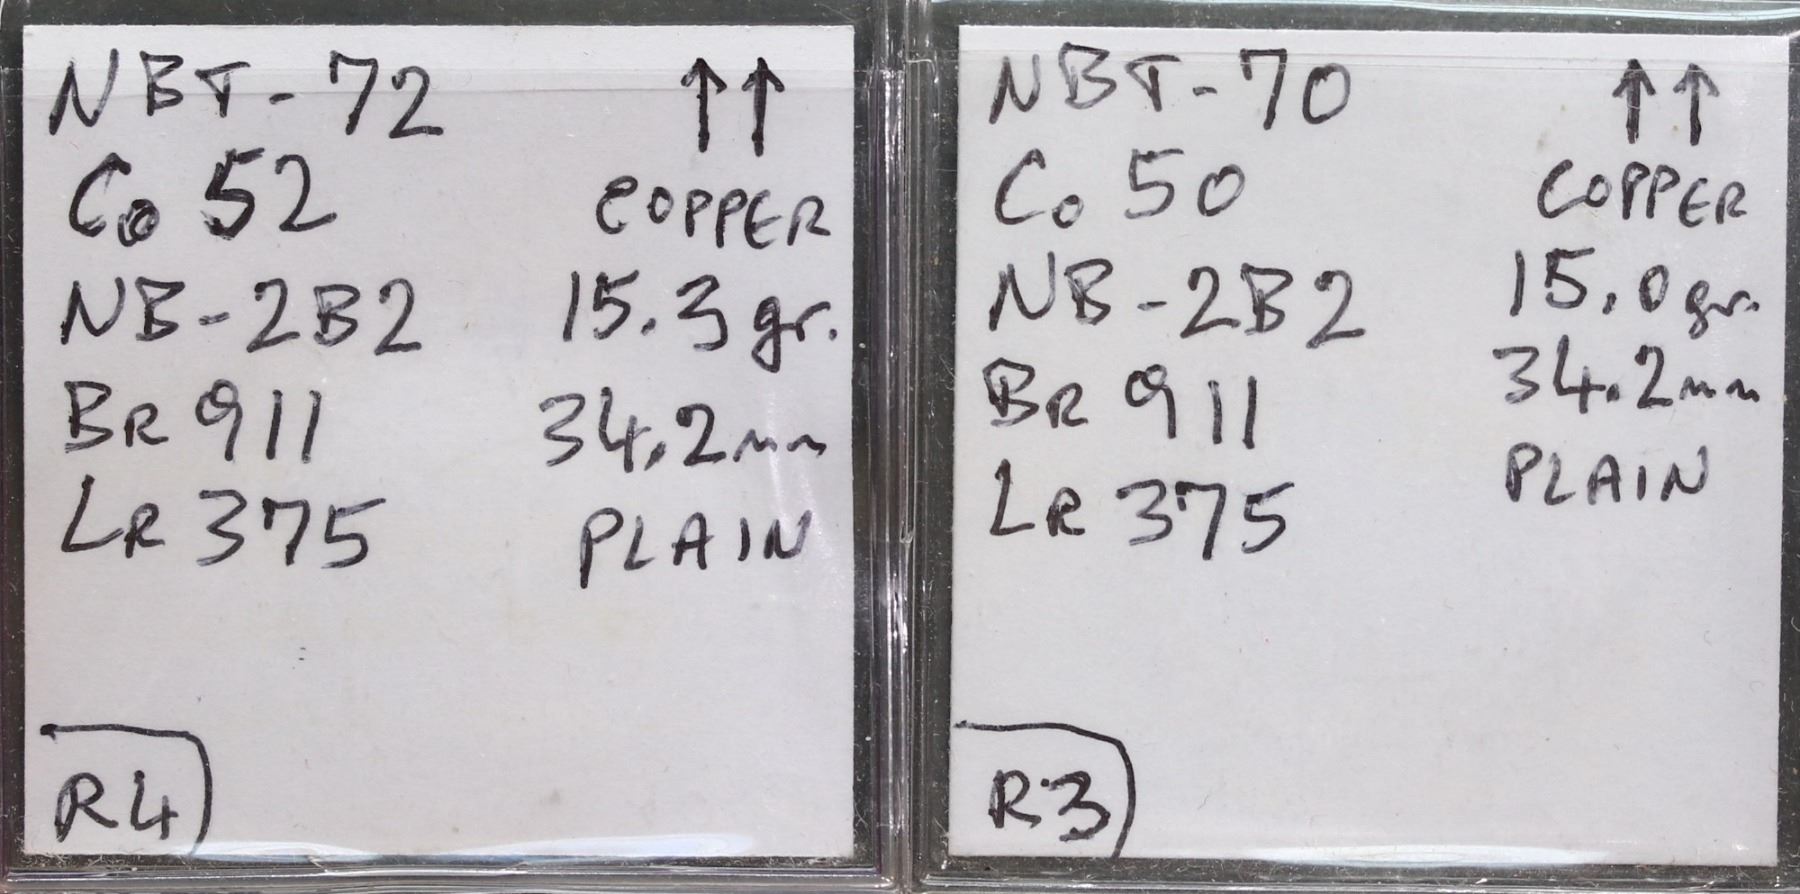 NBT-72 ↑↑
Co 52 COPPER
NB-2B2 15.3 gr.
BR 911 34.2mm
LR 375 PLAIN
R4
NBT-70 ↑↑
Co 50 COPPER
NB-2B2 15.0 gr.
BR 911 34.2mm
LR 375 PLAIN
R3